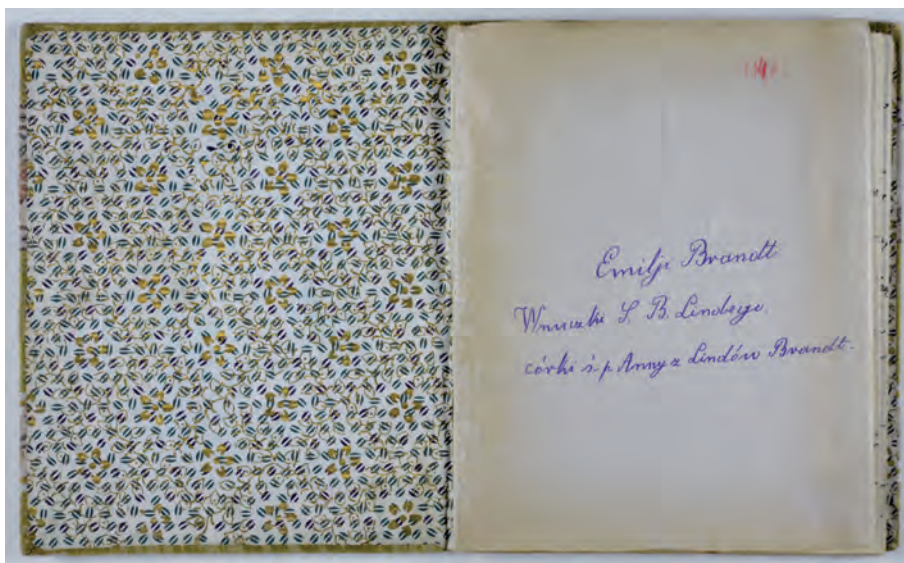 Emilji Brandt
Wnuczki S. B. Lindego.
córki ś. p. Anny z Lindów Brandt.